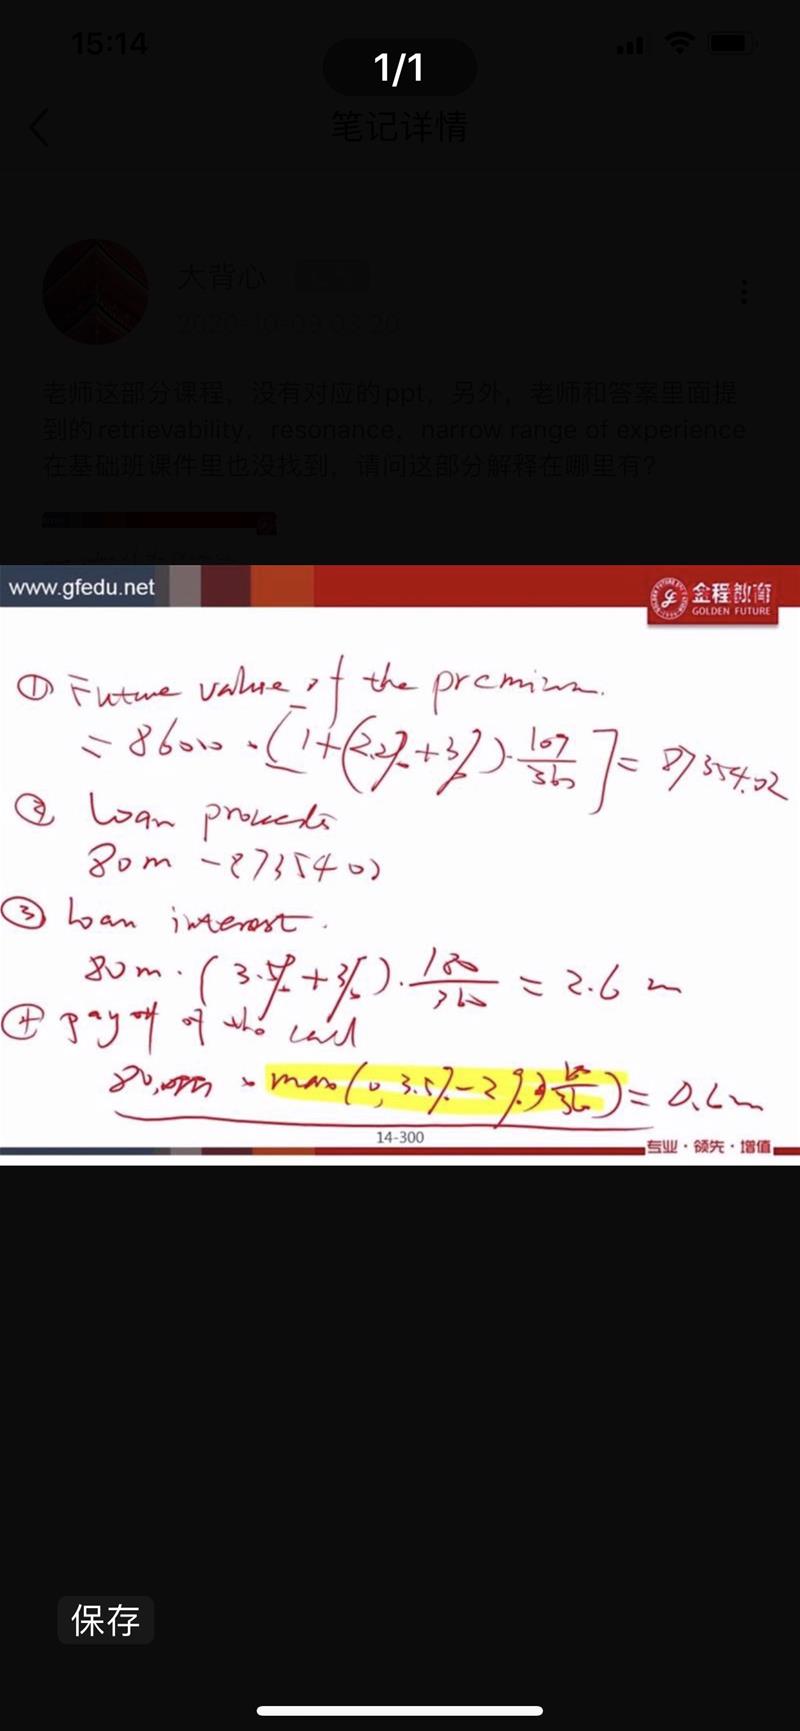 15:14
1/1
笔记详情
大背心
2020-10-09 03:20
老师这部分课程，没有对应的ppt，另外，老师和答案里面提
到的retrievability，resonance，narrow range of experience
在基础班课件里也没找到，请问这部分解释在哪里有？
www.gfedu.net
金程教育
GOLDEN FUTURE
① Future value of the premium.
= 86000 · [1+(2.2%+3%)·109/360] = 87354.02
② Loan proceeds
80m - 87354.02
③ Loan interest.
80m · (3.5%+3%)·180/360 = 2.6 m
④ payoff of the call
· max(0, 3.5%-2%) = 0.6m
14-300
专业·领先·增值
保存